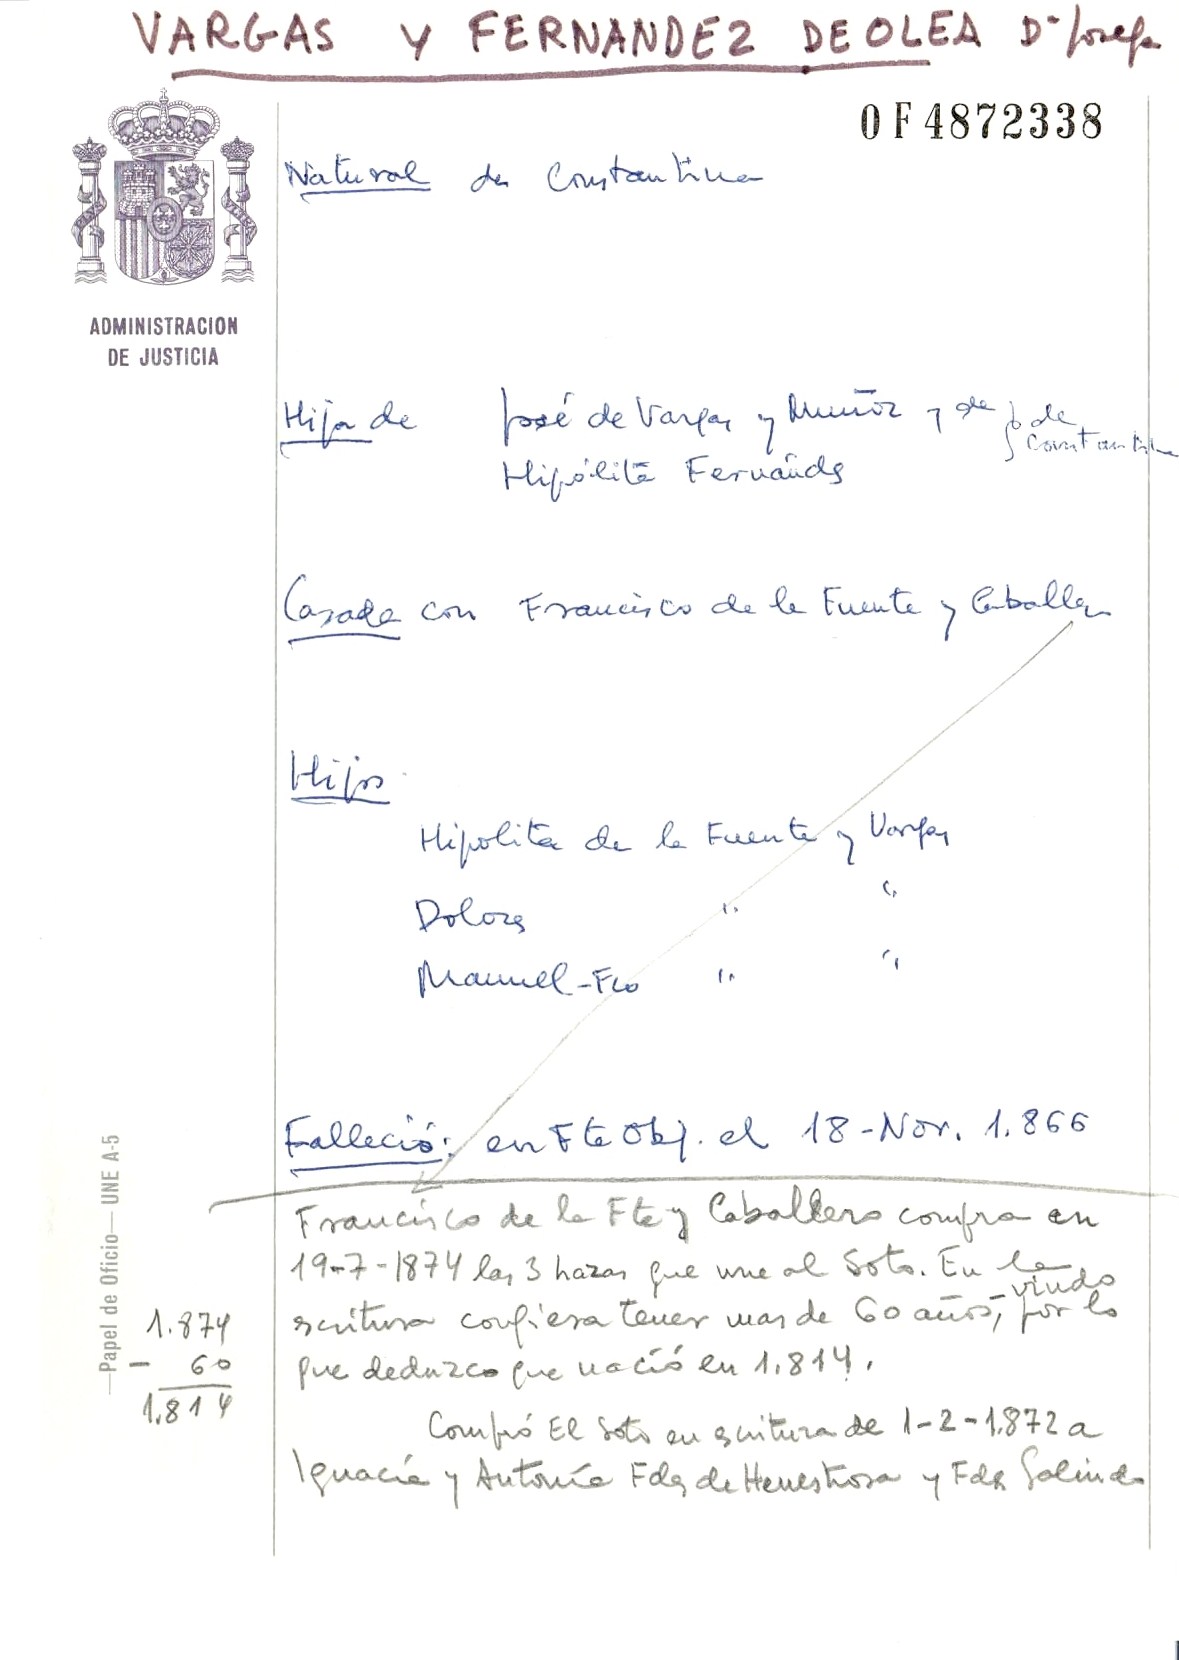 VARGAS y FERNANDEZ DE OLEA Dª Josefa
0F4872338
ADMINISTRACION
DE JUSTICIA
Natural de Constantina
Hija de José de Vargas y Muñoz y de
Hipólita Fernández
de
Constantina
Casada con Francisco de la Fuente y Caballero
Hijos
Hipolita de la Fuente y Vargas
Dolores " "
Manuel-Fco " "
Falleció: en Fte Obj. el 18-Nov. 1.866
Francisco de la Fte y Caballero compra en
19-7-1874 las 3 hazas que une al Soto. En la
escritura confiesa tener mas de 60 años, - viudo por lo
que deduzco que nació en 1.814.
Compró El Soto en escritura de 1-2-1.872 a
Ignacia y Antonia Fdez de Henestrosa y Fdez Galindo
1.874
- 60
1.814
—Papel de Oficio— UNE A-5